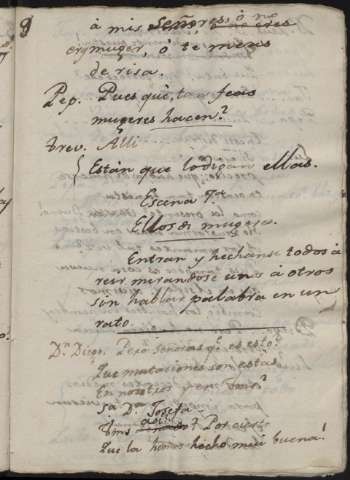 à mis Señores ò no eres
mi muger, ò te mueres
de risa.
Pep. Pues què, tan feas
mugeres hacen?
Trev. Alli
Están que lo digan ellas.
Escena 7ª
Ellos de mugeres.
Entran y hechanse todos à
reir mirandose unos à otros
sin hablar palabra en un
rato.
Dn. Diego. Pero Señoras qe. es esto?
Que mutaciones son estas
En nosotros
à Da. Josefa
Vms. aqui? Por cierto
Que la hemos hecho mui buena!